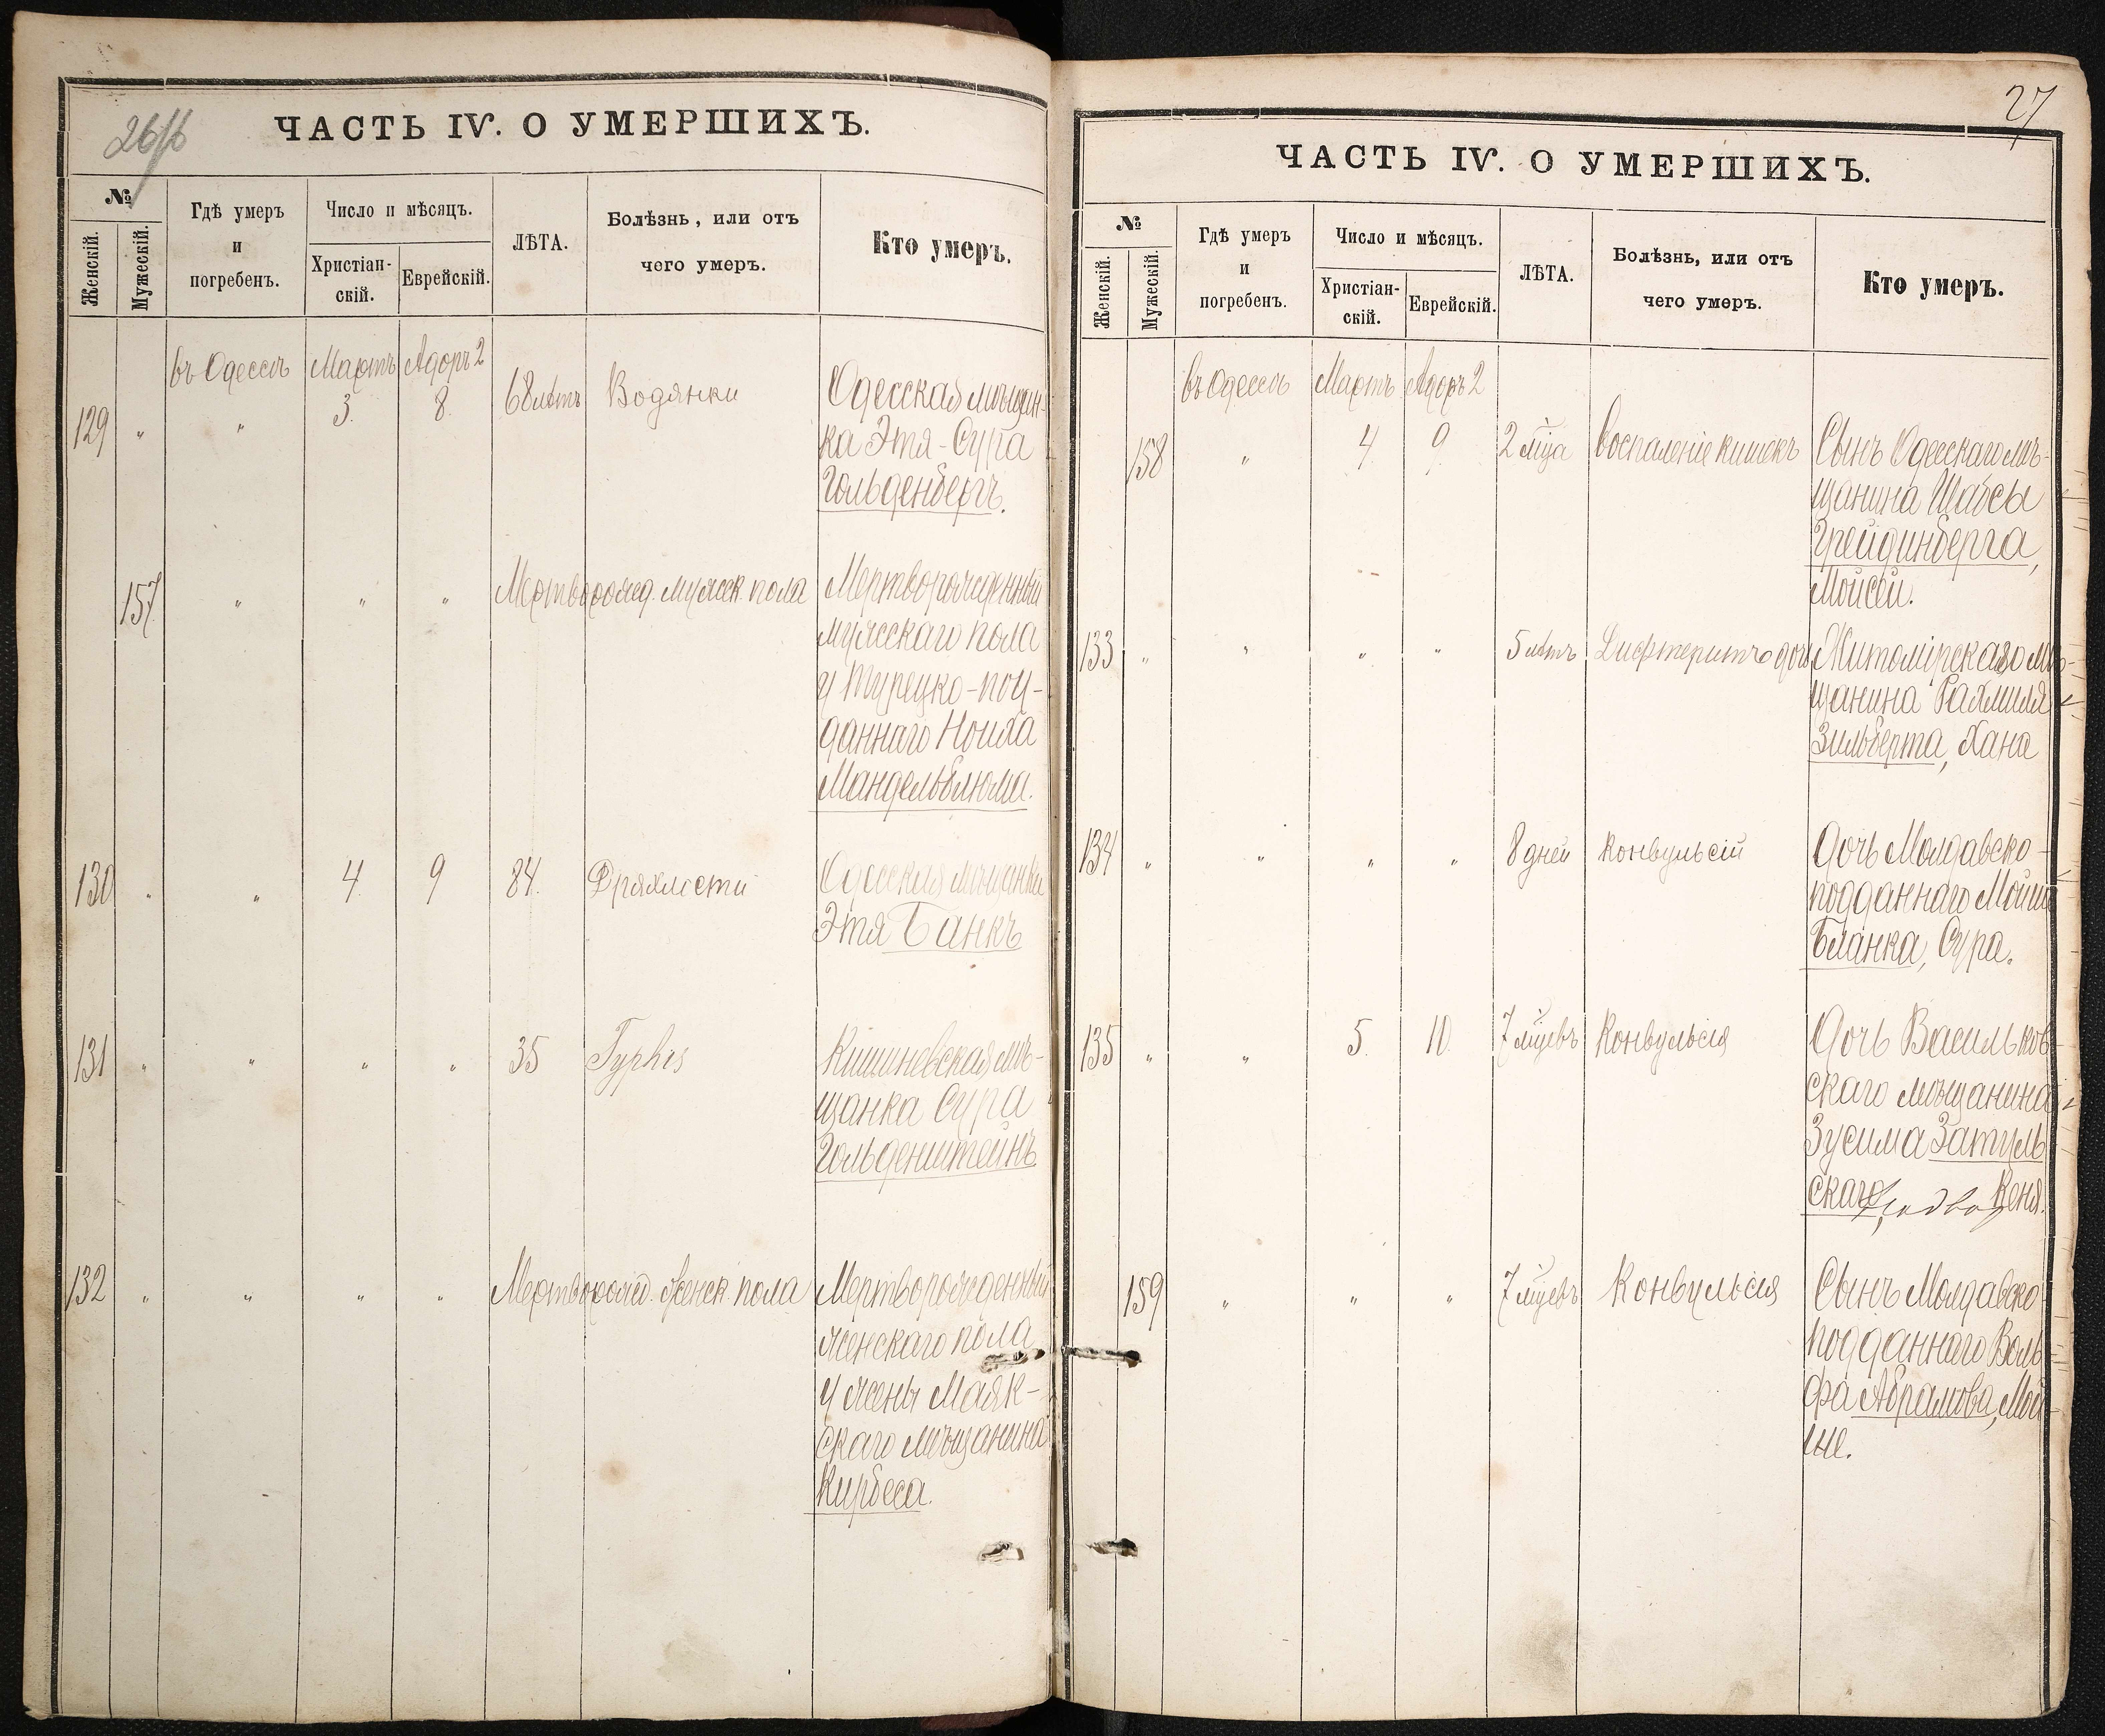 ЧАСТЬ IV. О УМЕРШИХЪ.
№
Женскій.
Мужескій.
Гдѣ умеръ
и
погребенъ.
Число и мѣсяцъ.
Христіан-
скій.
Еврейскій.
ЛѢТА.
Болѣзнь, или отъ
чего умеръ.
Кто умеръ.
въ Одессѣ Мартъ Адоръ 2
129 " " 3. 8. 68 лѣтъ Водянки Одесская мѣщан-
ка Этя-Сура
Гольденбергъ.
157 " " " Мертворожд. мужеск. пола Мертворожденный
мужескаго пола
у Турецко-под-
даннаго Ноиха
Мандельблюма.
130 " " 4. 9 84. Дряхлости Одесская мѣщанка
Этя Банкъ
131 " " " " 35 Typhis Кишиневская мѣ-
щанка Сура
Гольденштейнъ
132 " " " " Мертворожд. женск. пола Мертворожденный
женскаго пола
у жены Маяк-
скаго мѣщанина
Кирбеса.
27
ЧАСТЬ IV. О УМЕРШИХЪ.
№
Женскій.
Мужескій.
Гдѣ умеръ
и
погребенъ.
Число и мѣсяцъ.
Христіан-
скій.
Еврейскій.
ЛѢТА.
Болѣзнь, или отъ
чего умеръ.
Кто умеръ.
въ Одессѣ Мартъ Адоръ 2
158 " 4. 9. 2 мѣца Воспаленіе кишекъ Сынъ Одесскаго мѣ-
щанина Шабсы
Грейдинберга,
Мойсей.
133 " " " " 5 лѣтъ Дифтеритъ дочь Житомірскаго мѣ-
щанина Рахмиля
Зильберта, Хана
134 " " " " 8 дней Конвульсій Дочь Молдавско-
подданнаго Мойш
Бланка, Сура.
135 " " 5. 10. 7 мѣцевъ Конвульсія Дочь Васильков-
скаго мѣщанина
Зусима Затуль
скаго, Кеня.
159 " " " 7 мѣцевъ Конвульсія Сынъ Молдавско
подданнаго Воль
фа Абрамова, Мой
ше.